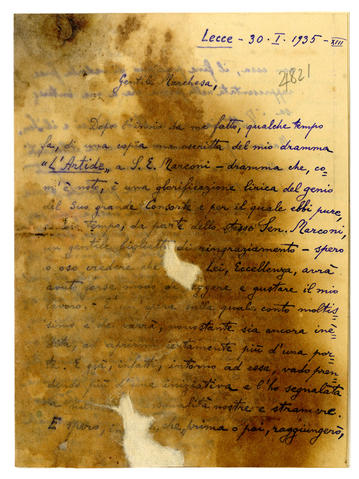 Lecce - 30. I. 1935 - XIII
21821
Gentile Marchesa,
Dopo l'invio da me fatto, qualche tempo
fa, di una copia manoscritta del mio dramma
"L'Artide" a S. E. Marconi - dramma che, co=
m'è noto, è una glorificazione lirica del genio
del Suo grande Consorte e per il quale ebbi pure,
a suo tempo, da parte dello stesso Sen. Marconi,
un gentile biglietto di ringraziamento - spero
o oso credere che Lei, Eccellenza, avrà
avuto forse modo di leggere e gustare il mio
lavoro. opera sulla quale conto moltis=
simo e che varrà, nonostante sia ancora ine=
dita, ad aprirmi certamente più d'una por=
ta. E già, infatti, intorno ad essa, vado pren=
dendo più d'una iniziativa e l'ho segnalata
nostre e straniere.
E spero, che, prima o poi, raggiungerò,